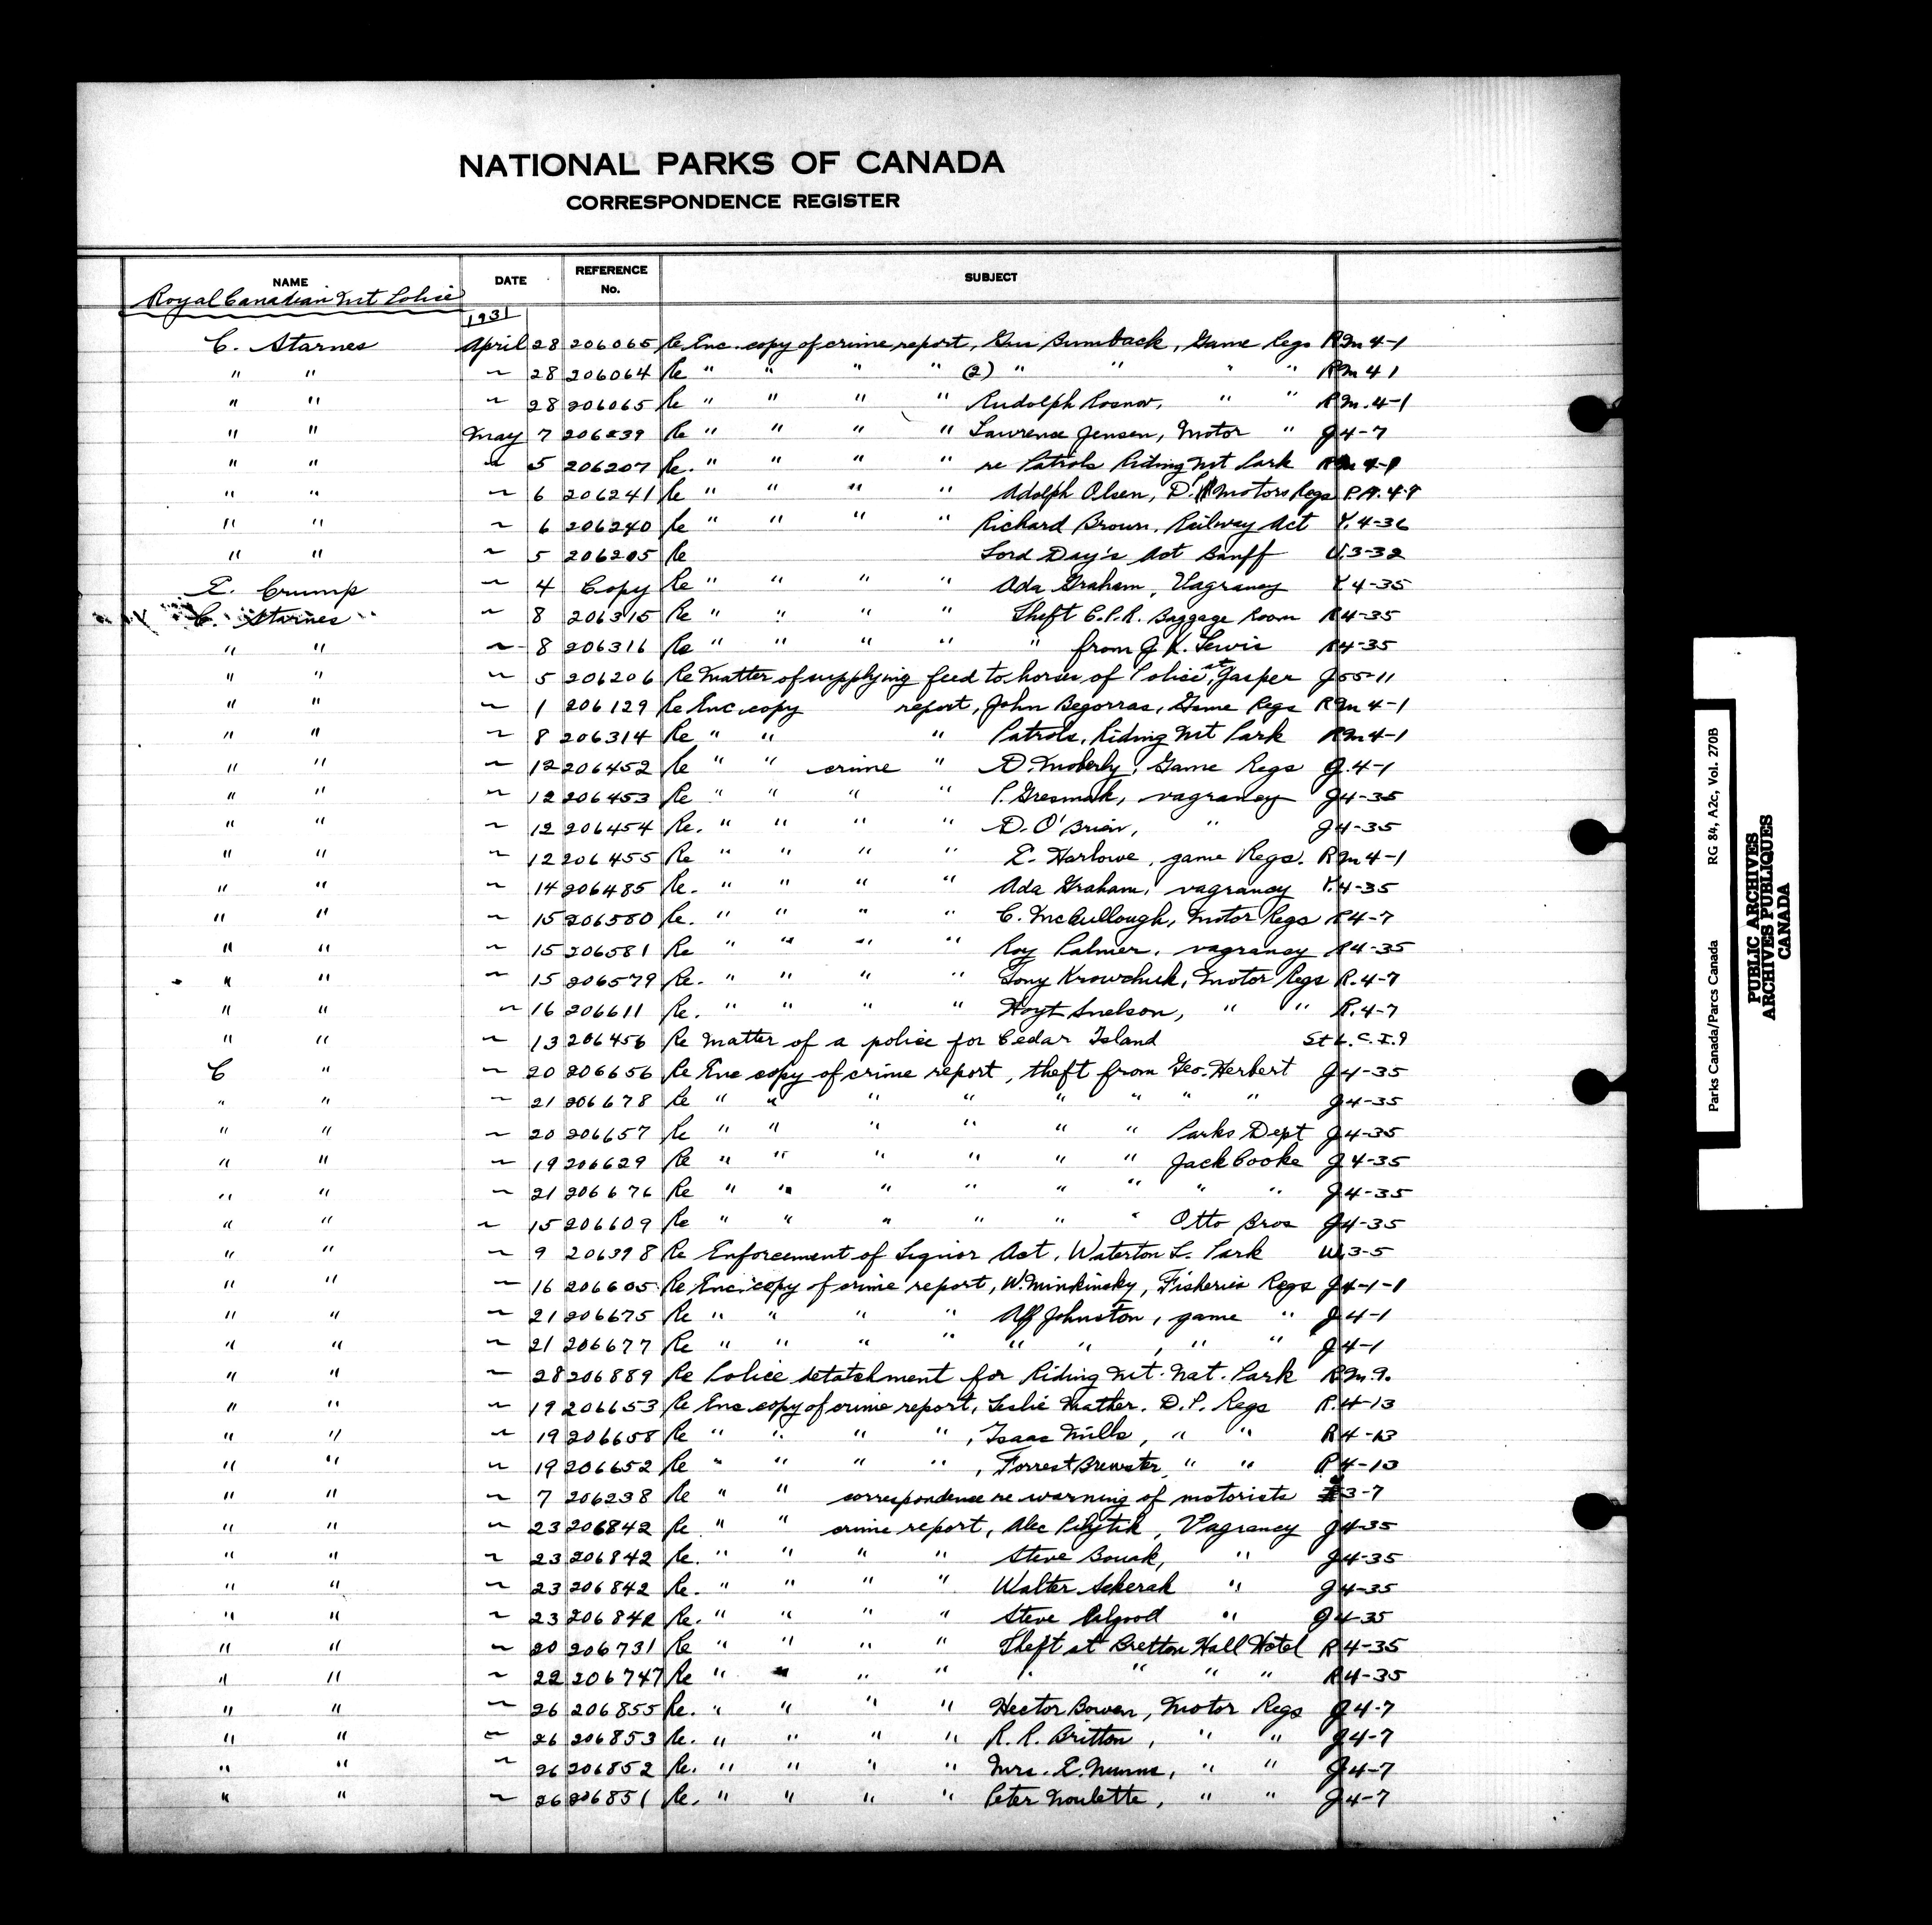 NATIONAL PARKS OF CANADA
CORRESPONDENCE REGISTER
NAME DATE REFERENCE No. SUBJECT
Royal Canadian Mt Police
1931
C. Starnes April 28 206065 Re Enc. copy of crime report, Gus Bumback, Game Regs RM 4-1
" " ~ 28 206064 Re " " " " (2) " " " " RM 41
" " ~ 28 206065 Re " " " " Rudolph Rosnor, " " RM. 4-1
" " May 7 206239 Re " " " " Lawrence Jensen, Motor " J4-7
" " ~ 5 206207 Re. " " " " re Patrols Riding Mt Park
" " ~ 6 206241 Re " " " " Adolph Olsen, D. Motors Regs P.A. 4-9
" " ~ 6 206240 Re " " " " Richard Brown, Railway Act Y. 4-36
" " ~ 5 206205 Re Lord Day's Act Banff U.3-32
E. Crump ~ 4 Copy Re " " " " Ada Graham, Vagrancy Y 4-35
C. Starnes ~ 8 206315 Re " " " " Theft C.P.R. Baggage Room R4-35
" " ~ 8 206316 Re " " " " " from J. K. Lewis R4-35
" " ~ 5 206206 Re Matter of supplying feed to horses of Police, at Jasper J55-11
" " ~ 1 206129 Re Enc. copy report, John Begorras, Game Regs RM 4-1
" " ~ 8 206314 Re " " " Patrols, Riding Mt Park RM4-1
" " ~ 12 206452 Re " " crime " D. Moberly, Game Regs J.4-1
" " ~ 12 206453 Re " " " " P. Gresmak, vagrancy J4-35
" " ~ 12 206454 Re. " " " " D. O'Brien, " J4-35
" " ~ 12 206455 Re " " " " E. Harlowe, game Regs. RM 4-1
" " ~ 14 206485 Re. " " " " Ada Graham, vagrancy Y.4-35
" " ~ 15 206580 Re. " " " " C. McCullough, Motor Regs R4-7
" " ~ 15 206581 Re " " " " Roy Palmer, vagrancy R4-35
" " ~ 15 206579 Re. " " " " Tony Krowchuk, Motor Regs R.4-7
" " ~ 16 206611 Re. " " " " Hoyt Snelson, " " R.4-7
" " ~ 13 206456 Re matter of a police for Cedar Island St L. C. I. 9
C " ~ 20 206656 Re Enc copy of crime report, theft from Geo. Herbert J4-35
" " ~ 21 206678 Re " " " " " " " " J4-35
" " ~ 20 206657 Re " " " " " " Parks Dept J4-35
" " ~ 19 206629 Re " " " " " " Jack Cooke J4-35
" " ~ 21 206676 Re " " " " " " " " J4-35
" " ~ 15 206609 Re " " " " " " Otto Bros J4-35
" " ~ 9 206398 Re Enforcement of Liquor Act, Waterton L. Park W.3-5
" " ~ 16 206605 Re Enc. copy of crime report, W. Minkinsky, Fisheries Regs J4-1-1
" " ~ 21 206675 Re " " " " Alf Johnston, game " J4-1
" " ~ 21 206677 Re " " " " " " , " " J4-1
" " ~ 28 206889 Re Police detatchment for Riding Mt. Nat. Park R.M.9.
" " ~ 19 206653 Re Enc copy of crime report, Leslie Mather. D.P. Regs R.4-13
" " ~ 19 206658 Re " " " " , Isaac Mills, " " R4-13
" " ~ 19 206652 Re " " " " , Forrest Brewster, " " R4-13
" " ~ 7 206238 Re " " correspondence re warning of motorists 3-7
" " ~ 23 206842 Re " " crime report, Alec , Vagrancy J4-35
" " ~ 23 206842 Re. " " " " Steve Bouak, " J4-35
" " ~ 23 206842 Re. " " " " Walter Sekerak " J4-35
" " ~ 23 206842 Re. " " " " Steve " J4-35
" " ~ 20 206731 Re " " " " Theft at Bretton Hall Hotel R4-35
" " ~ 22 206747 Re " " " " " " " " R4-35
" " ~ 26 206855 Re. " " " " Hector Bowen, Motor Regs J4-7
" " ~ 26 206853 Re. " " " " R. R. Britton, " " J4-7
" " ~ 26 206852 Re. " " " " Mrs. E. Munns, " " J4-7
" " ~ 26 206851 Re. " " " " Peter Moulette, " " J4-7
Parks Canada/Parcs Canada RG 84, A2c, Vol. 270B
PUBLIC ARCHIVES
ARCHIVES PUBLIQUES
CANADA